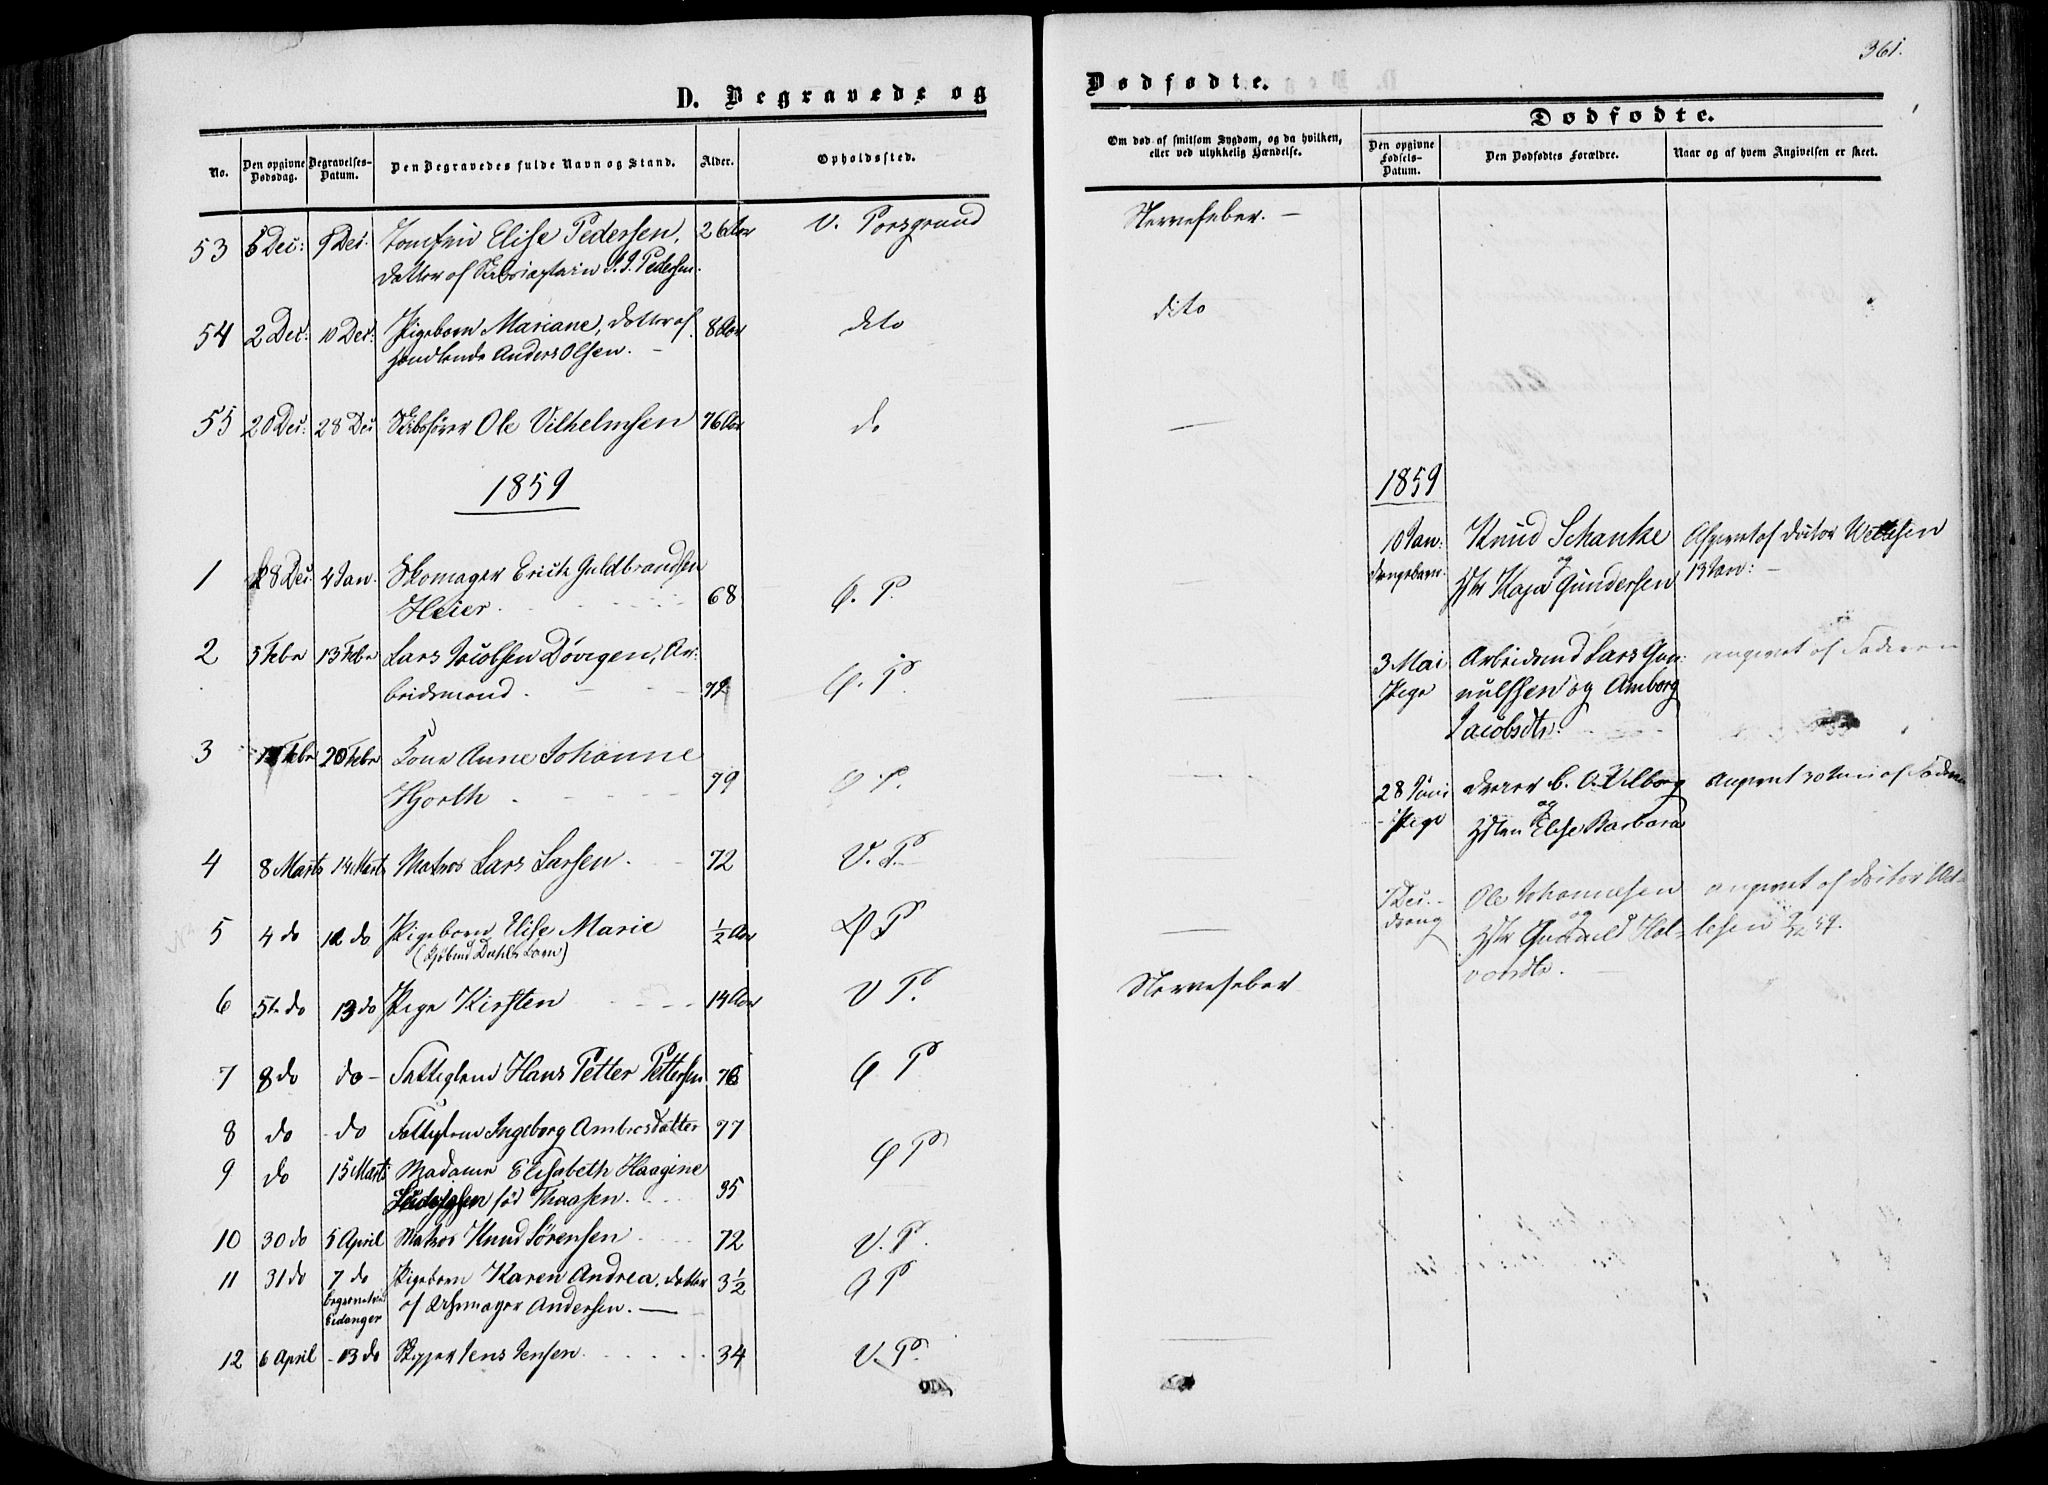 361.
D. Begravede og
Dødfødte.
No.
Den opgivne Dødsdag.
Begravelses-Datum.
Den Begravedes fulde Navn og Stand.
Alder.
Opholdssted.
Om død af smitsom Sygdom, og da hvilken,
eller ved ulykkelig Hændelse.
Dødfødte.
Den opgivne Fødsels-Datum.
Den Dødfødtes Forældre.
Naar og af hvem Angivelsen er skeet.
53 6 Dec: 9 Dec. Jomfru Elise Pedersen, 26 Aar V. Porsgrund Nerveseber. —
Datter af P. Pedersen.
54 2 Dec: 10 Dec: Pigebarn Mariane, Datter af 8 Aar dito dito
Handlende Anders Olsen. —
55 20 Dec: 28 Dec Ole Vilhelmsen 76 Aar do —
1859
1 28 Dec. 4 Jan. Skomager Erick Guldbrandsen
Heier. 68 Ø. P.
2 5 Febr 13 Febr Lars Jacobsen Døvigen, Ar-
beidsmand. 72 Ø. P.
3 Febr 20 Febr Kone Anne Johanne
Hjorth 79 Ø P.
4 8 Marts 14 Marts Matros Lars Larsen. 72 V. P.
5 4 do 12 do Pigebarn Elise Marie ½ Aar Ø P —
6 5te do 13 do Pige Kirsten 14 Aar V P. Nerveseber
7 8 do do - Fattiglem Hans Petter Pettersen 76 Ø P
8 do - do Fattiglem Ingeborg Ambrosdatter 77
9 do 15 Marts Madame Elisabeth Haagine Ø P
fød Thaasen. 35
10 30 do 5 April Matros Knud Sørensen 72 V. P.
11 31 do 7 do Pigebarn Karen Andrea, Datter 3½ Ø P
Eidanger af Andersen. —
12 6 April - 13 do Skipper Jens Jensen. 34 V. P.
1859
10 Jan: Knud Schanke Afgivet af Doctor Wettesen
Drengebarn. og Kaja Gundersen 13 Jan: —
3 Mai Arbeidsmd Lars Gun-
Pige nulfsen og Amborg angivet af Faderen
Jacobsdtr.
28 Juni C. A. Angivet 30 Juni af Faderen
- Pige og Hstru Elise Barbara
Dec. Ole Johannesen angivet af Doctor Wet-
Dreng og Hstr Gunnild Hal- tesen 59.
vorsdtr.